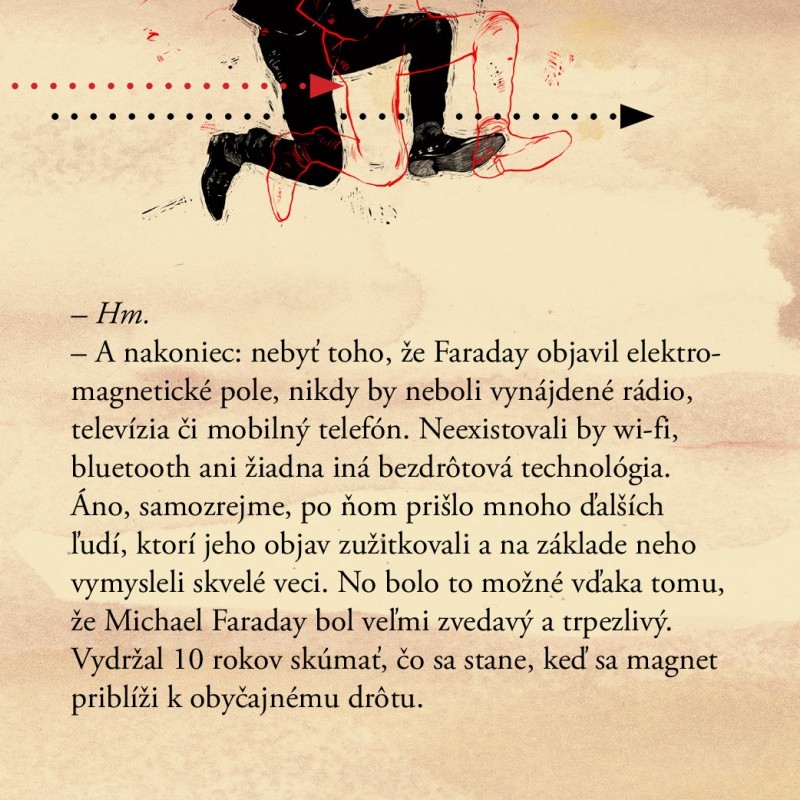 – Hm.
– A nakoniec: nebyť toho, že Faraday objavil elektro-
magnetické pole, nikdy by neboli vynájdené rádio,
televízia či mobilný telefón. Neexistovali by wi-fi,
bluetooth ani žiadna iná bezdrôtová technológia.
Áno, samozrejme, po ňom prišlo mnoho ďalších
ľudí, ktorí jeho objav zužitkovali a na základe neho
vymysleli skvelé veci. No bolo to možné vďaka tomu,
že Michael Faraday bol veľmi zvedavý a trpezlivý.
Vydržal 10 rokov skúmať, čo sa stane, keď sa magnet
priblíži k obyčajnému drôtu.